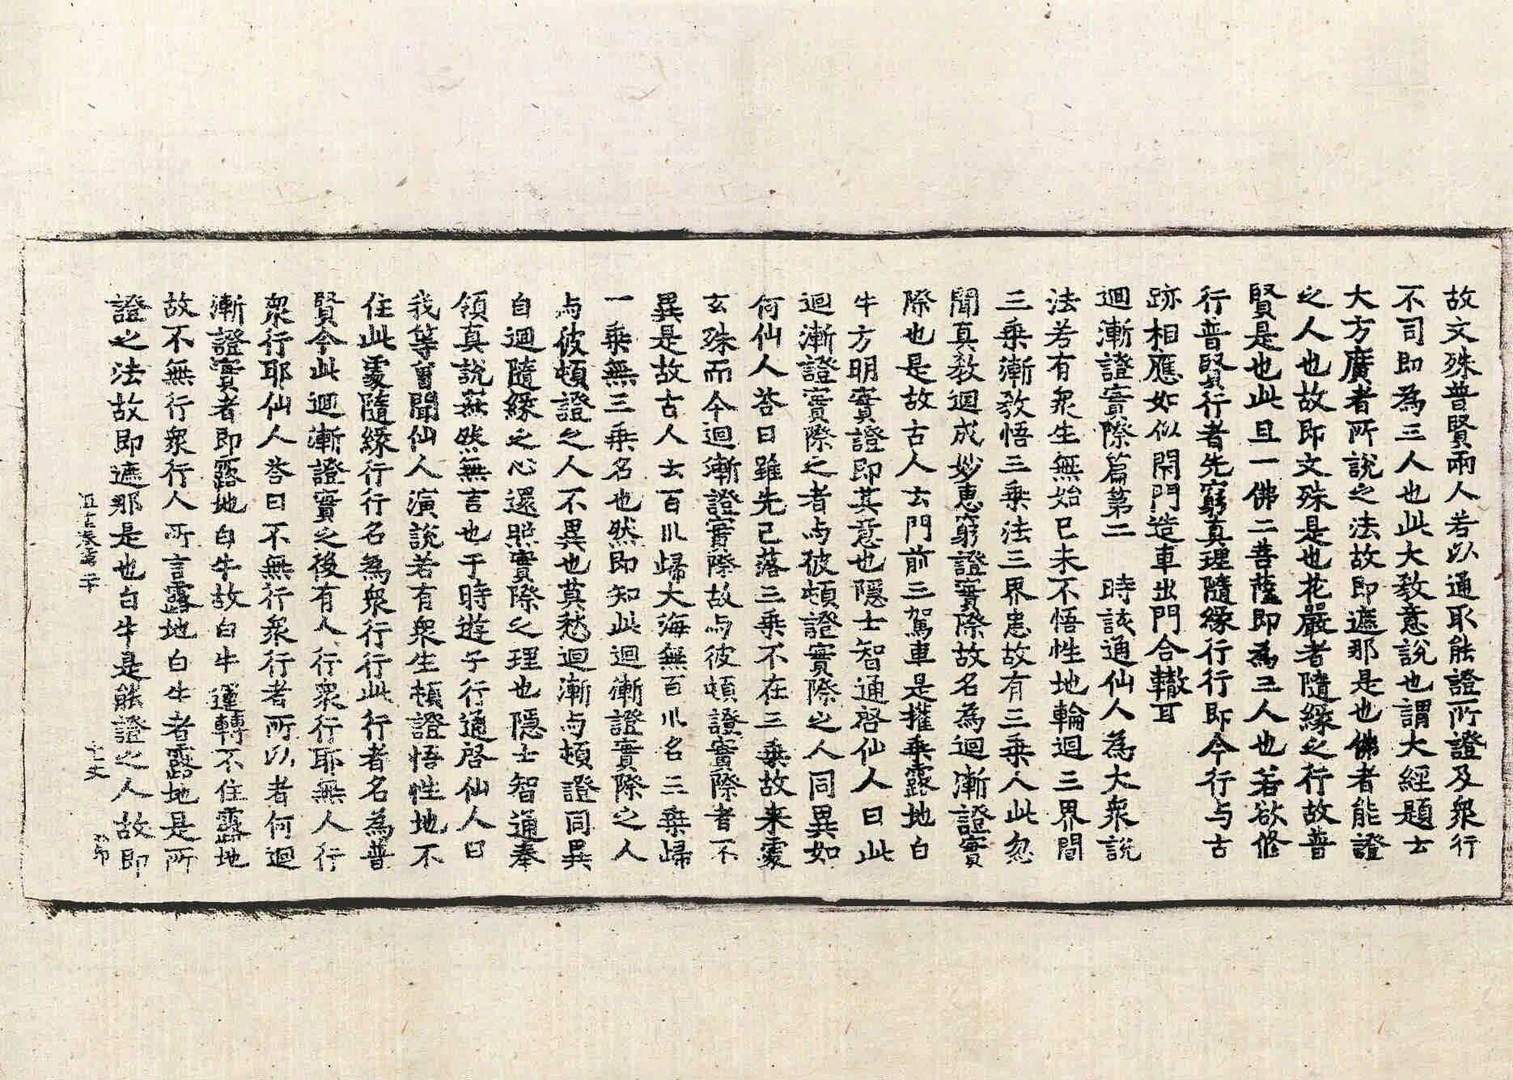 故文殊普賢兩人若以通取能證所證及衆行
不司即為三人也此大教意說也謂大經題士
大方廣者所說之法故即遮那是也佛者能證
之人也故即文殊是也花嚴者隨緣之行故普
賢是也此且一佛二菩薩即為三人也若欲修
行普賢行者先窮真理隨緣行行即今行与古
跡相應如似閇門造車出門合轍耳
迴漸證實際篇第二　時該通仙人為大衆說
法若有衆生無始已未不悟性地輪迴三界間
三乗漸教悟三乗法三界恚故有三乗人此忽
聞真教迴成妙恵窮證實際故名為迴漸證實
際也是故古人玄門前三駕車是攉乗露地白
牛方明實證即其意也隱士智通啓仙人曰此
迴漸證實際之者与彼頓證實際之人同異如
何仙人荅曰雖先已落三乗不在三乗故来處
玄殊而今迴漸證實際故与彼頓證實際者不
異是故古人士百川歸大海無百川名三乗歸
一乗無三乗名也然即知此迴漸證實際之人
与彼頓證之人不異也莫愁迴漸与頓證同異
自迴隨緣之心還照實際之理也隱士智通奉
領真說茫然無言也于時遊子行通啓仙人曰
我等曽聞仙人演說若有衆生頓證悟性地不
住此處隨緣行行名為衆行行此行者名為普
賢今此迴漸證實之後有人行衆行耶無人行
衆行耶仙人荅曰不無行衆行者所以者何迴
漸證實者即露地白牛故白牛運轉不住露地
故不無行衆行人所言露地白牛者露地是所
證之法故即遮那是也白牛是能證之人故即